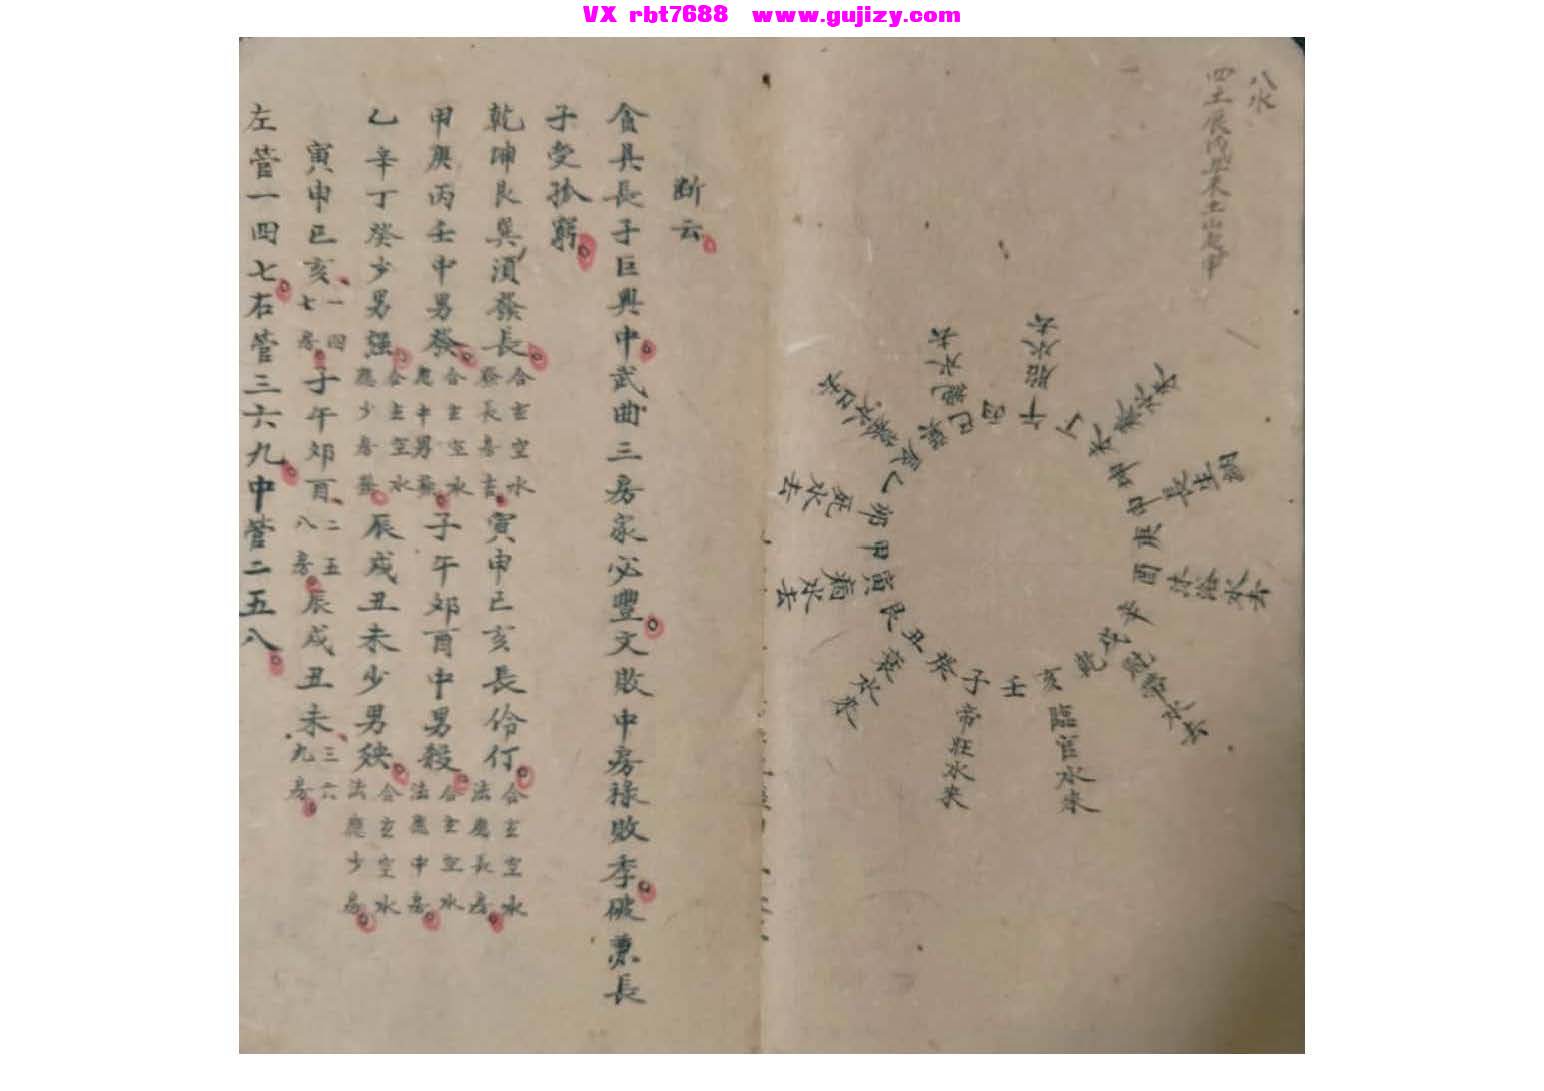 VX rbt7688 www.gujizy.com
八水
四土辰戌丑未土山起申
丙
午
胎水去
丁
戌
養水來
坤
申
長生
庚
酉
沐浴水去
辛
戌
冠帶水去
乾
亥
臨官水來
壬
子
帝旺水來
癸
丑
衰水來
艮
寅
病水去
甲
卯
死水去
乙
辰
巽
巳
絕水去
断云
貪具長子巨興中武曲三房家必豐文敗中房祿敗季破兼長
子受孤窮
乾坤艮巽須發長合玄空水發長房吉寅申巳亥長伶仃合玄空水法應長房
甲庚丙壬中男發合玄空水應中男發子午郊酉中男殺合玄空水法應中房
乙辛丁癸少男强合玄空水應少房發辰戌丑未少男殃合玄空水法應少房
寅申巳亥一四七房子午郊酉二五八房辰戌丑未三六九房
左菅一四七右菅三六九中菅二五八